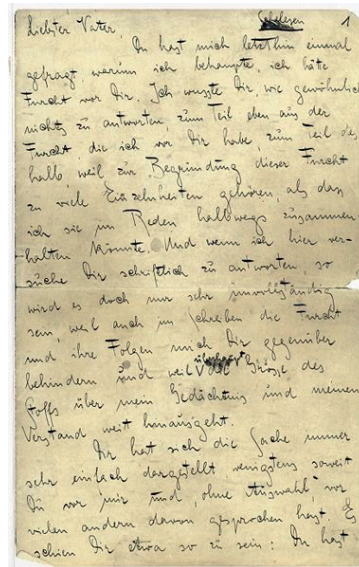 Schelesen 1
Liebster Vater,
Du hast mich letzthin einmal
gefragt, warum ich behaupte, ich hätte
Furcht vor Dir. Ich wusste Dir, wie gewöhnlich,
nichts zu antworten, zum Teil eben aus der
Furcht, die ich vor Dir habe, zum Teil des
halb weil zur Begründung dieser Furcht
zu viele Einzelnheiten gehören, als dass
ich sie im Reden halbwegs zusammen
halten könnte. Und wenn ich hier ver-
suche Dir schriftlich zu antworten, so
wird es doch nur sehr unvollständig
sein, weil auch im Schreiben die Furcht
und ihre Folgen mich Dir gegenüber
behindern und weil die Grösse des
Stoffs über mein Gedächtnis und meinen
Verstand weit hinausgeht.
Dir hat sich die Sache immer
sehr einfach dargestellt, wenigstens soweit
Du vor mir und, ohne Auswahl, vor
vielen andern davon gesprochen hast. Es
schien Dir etwa so zu sein: Du hast